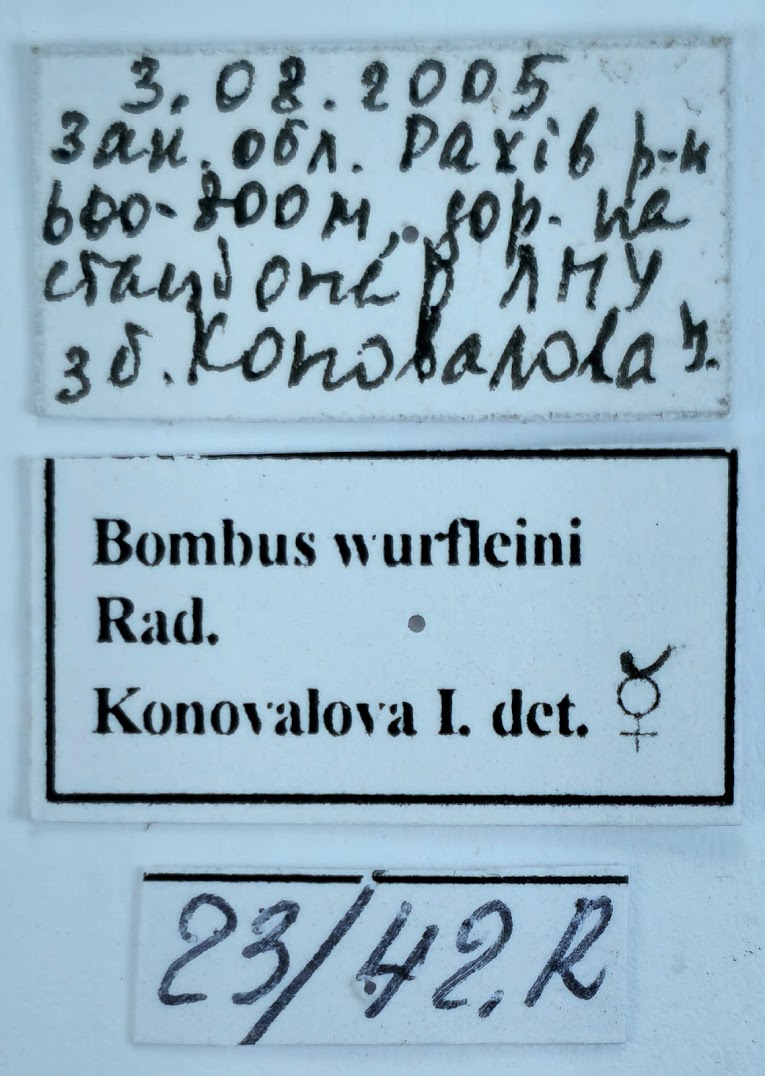 3.08.2005
Зак. обл. Рахів р-н
600-800м, дор. на
стаціонар ЛНУ
зб. Коновалова І.
Bombus wurfleini
Rad.
Konovalova I. det. ☿
23/42.R